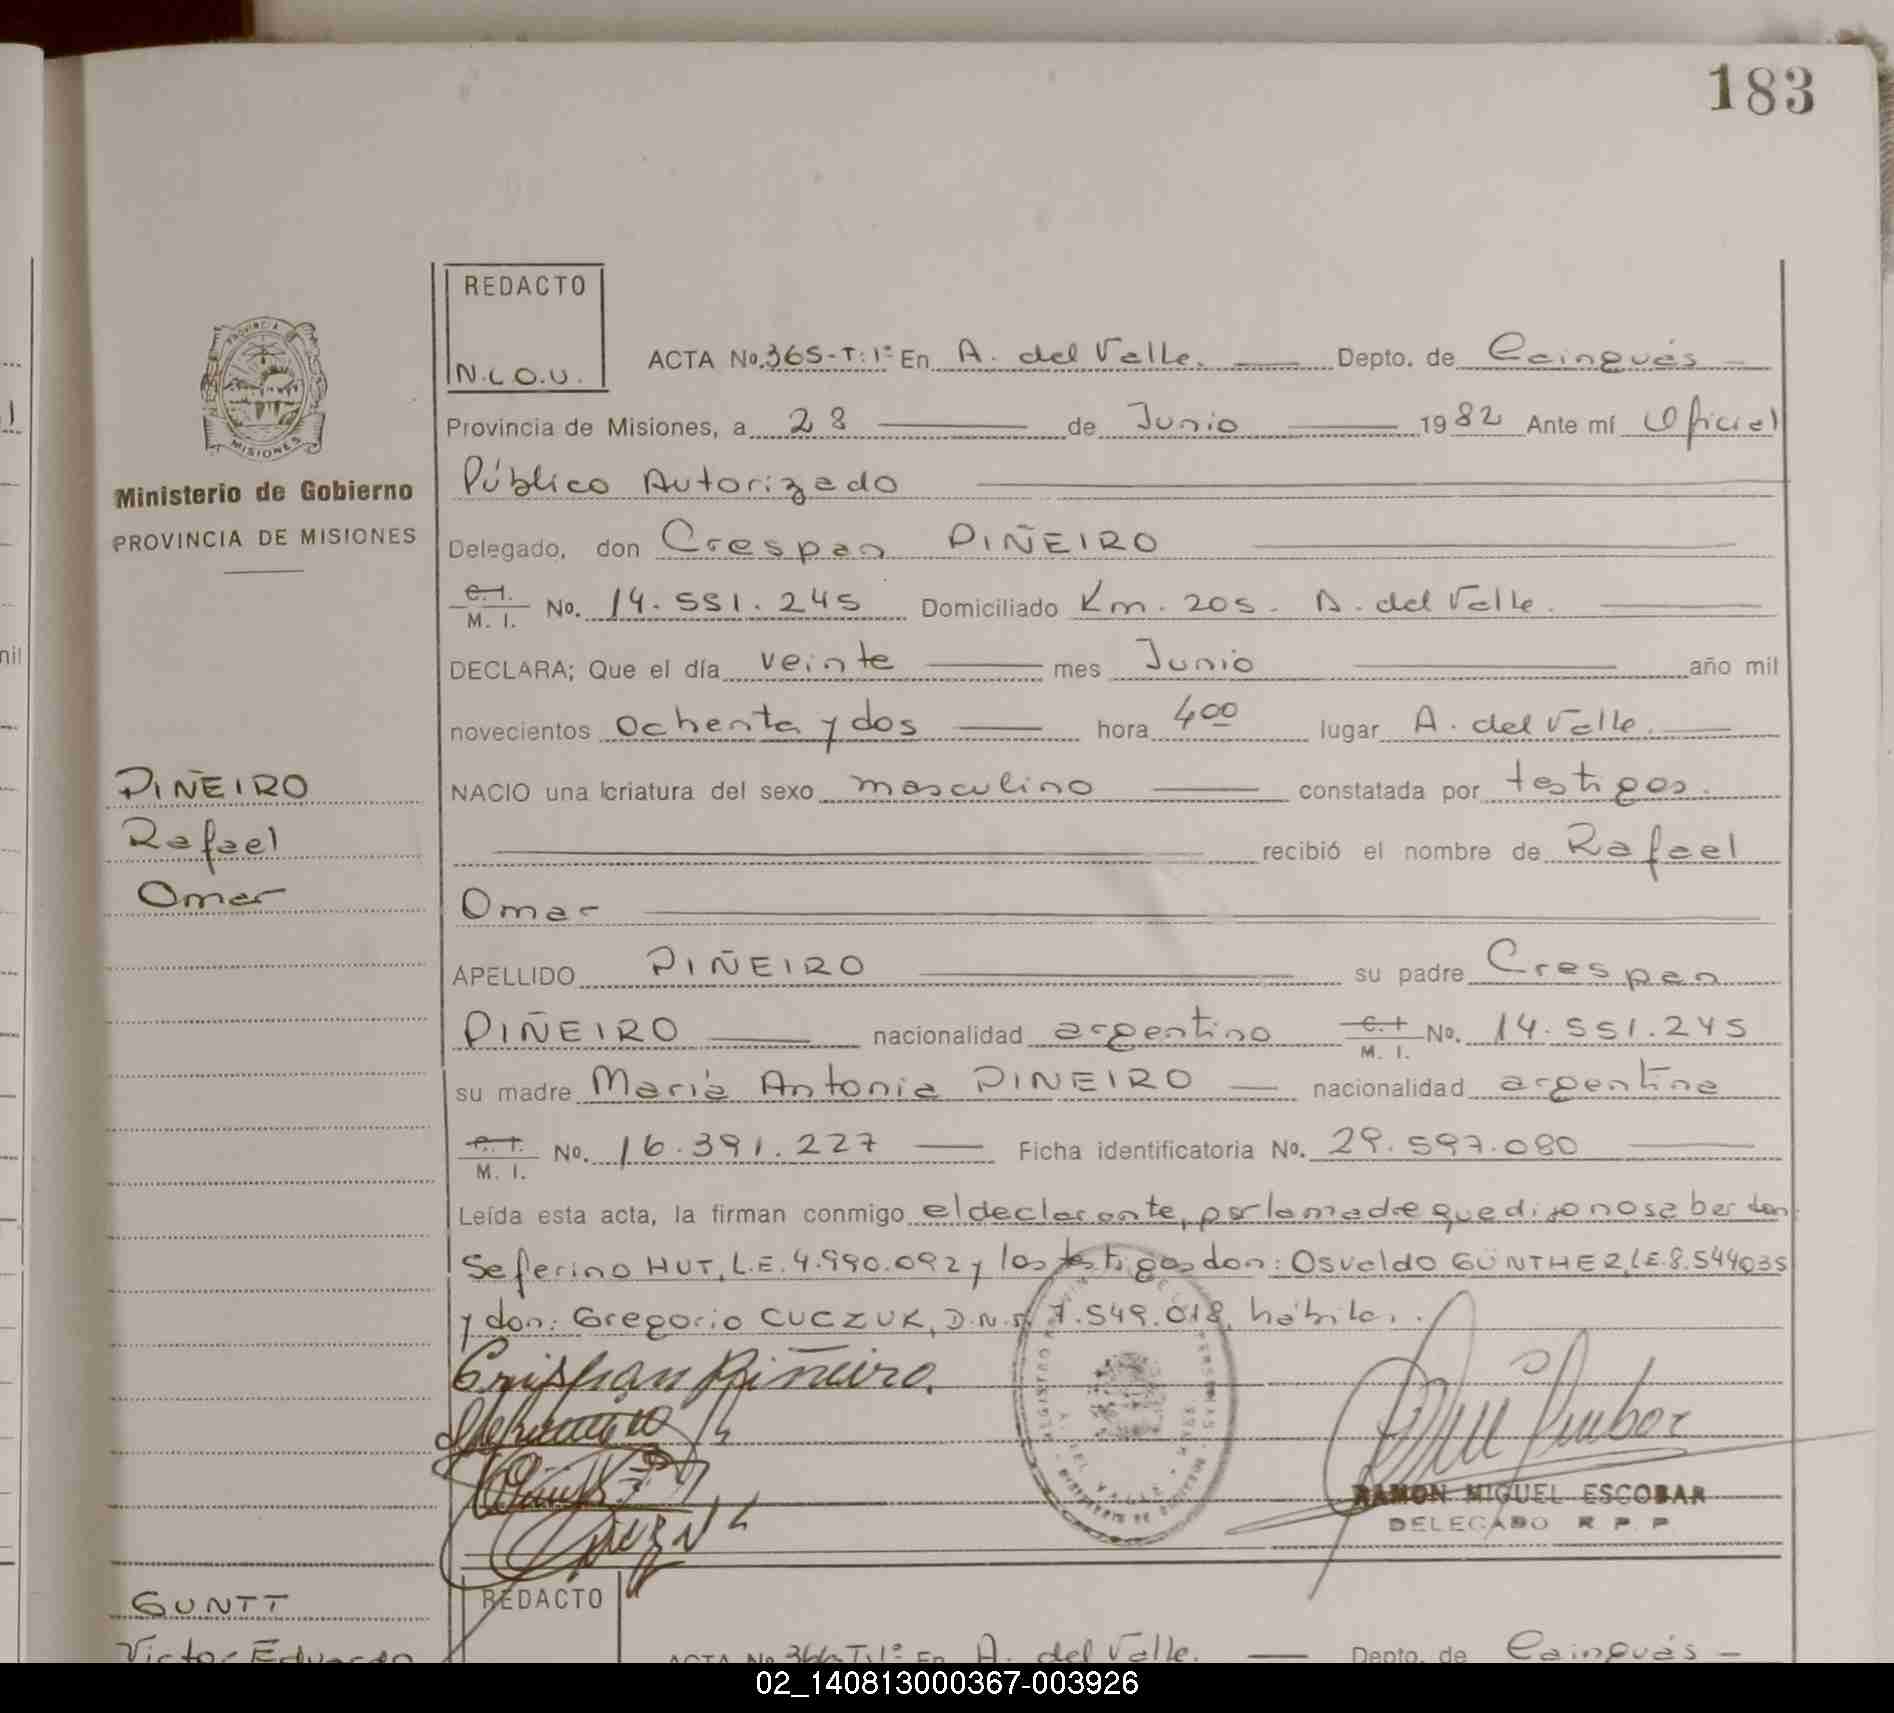 183
REDACTO
N.L.O.U.
ACTA No. 365-T:1º En A. del Valle. Depto. de Cainguás
Provincia de Misiones, a 28 de Junio 1982 Ante mí Oficial
Ministerio de Gobierno
PROVINCIA DE MISIONES
Público Autorizado
Delegado, don Crespan PIÑEIRO
C. I. M. I. No. 14.551.245 Domiciliado Km. 205. A. del Valle.
DECLARA; Que el día veinte mes Junio año mil
novecientos ochenta y dos hora 4 00 lugar A. del Valle.
PIÑEIRO
Rafael
Omar
NACIO una criatura del sexo masculino constatada por testigos.
recibió el nombre de Rafael
Omar
APELLIDO PIÑEIRO su padre Crespan
PIÑEIRO nacionalidad argentino C. I. M. I. No. 14.551.245
su madre María Antonia PINEIRO nacionalidad argentina
C. I. M. I. No. 16.391.227 Ficha identificatoria No. 29.597.080
Leída esta acta, la firman conmigo el declarante, por la madre que dijo no saber don:
Seferino HUT, L.E. 4.990.092 y los testigos don: Osvaldo GÜNTHER, L.E. 8.544035
y don: Gregorio CUCZUK, D.N.I. 7.549.018, hábiles.
Crispan Piñeiro
RAMON MIGUEL ESCOBAR
DELEGADO R P P
GUNTT
Victor Eduardo
REDACTO
ACTA No. 366 T:1º En A. del Valle. Depto. de Cainguás
02_140813000367-003926